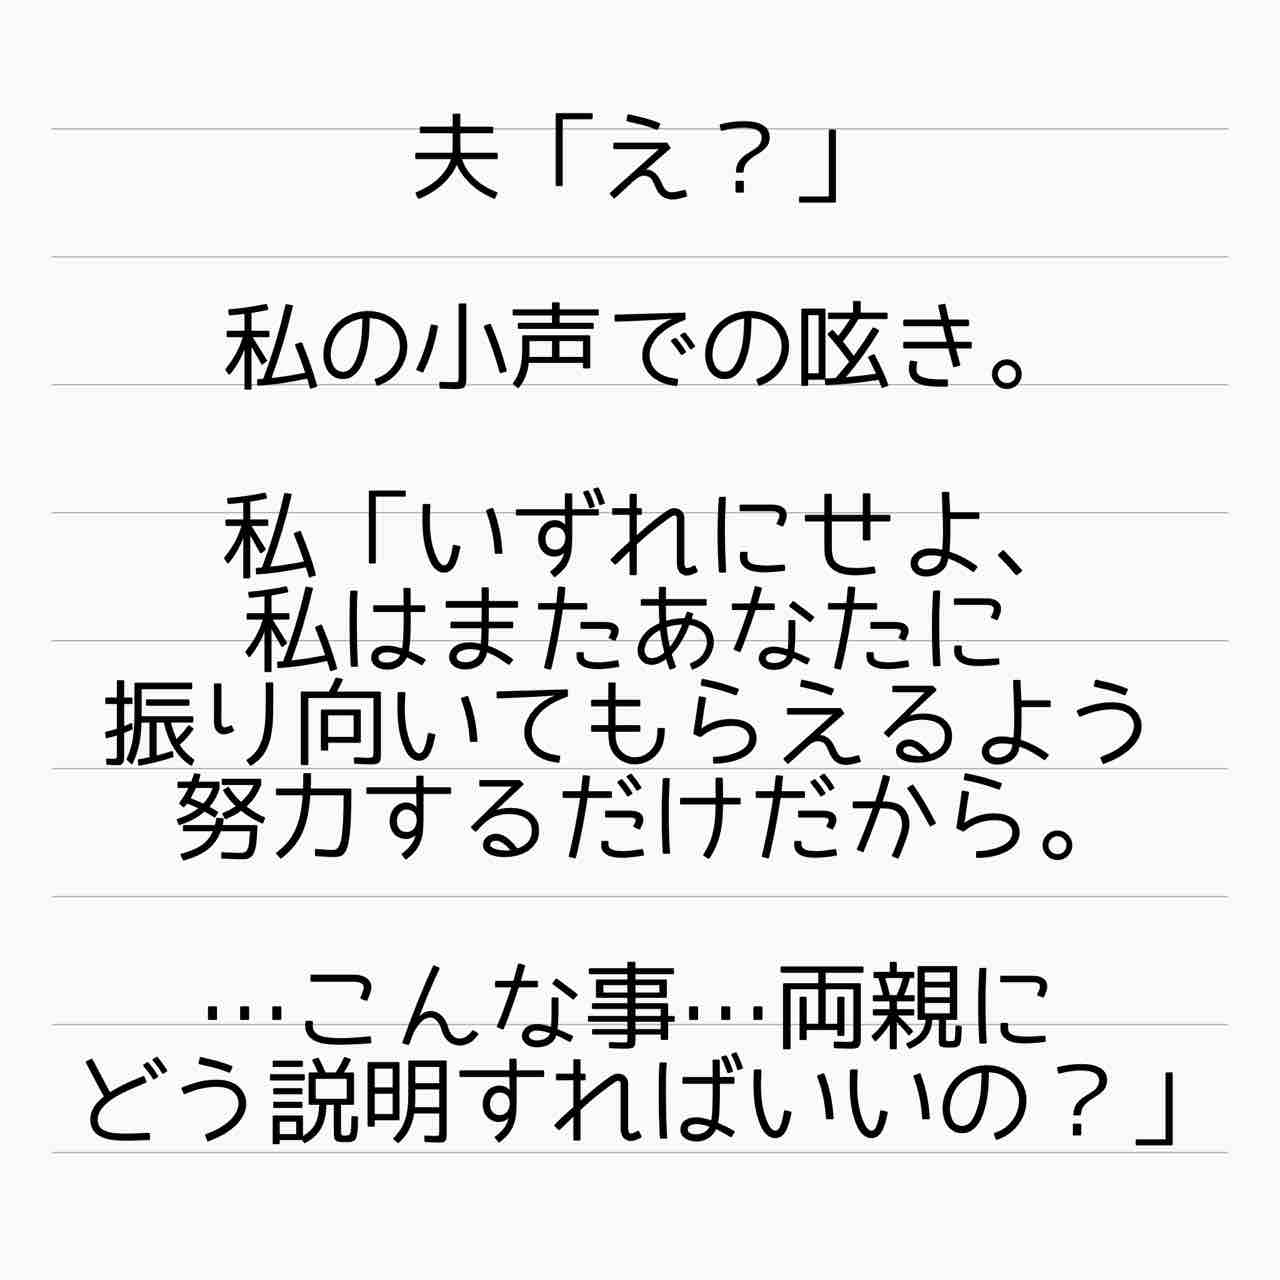 夫「え？」
私の小声での呟き。
私「いずれにせよ、
私はまたあなたに
振り向いてもらえるよう
努力するだけだから。
…こんな事…両親に
どう説明すればいいの？」